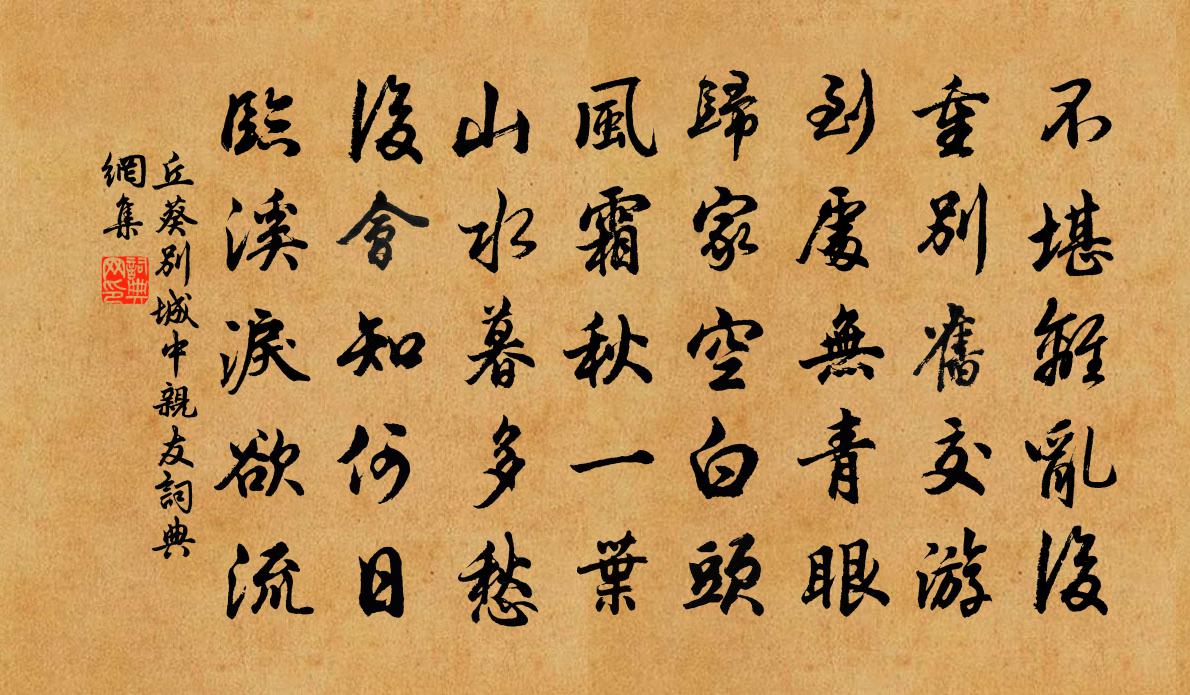 不堪離亂後
重別舊交游
到處無青眼
歸家空白頭
風霜秋一葉
山水暮多愁
後會知何日
臨溪淚欲流
丘葵別城中親友詞典
網集
詞典
网印